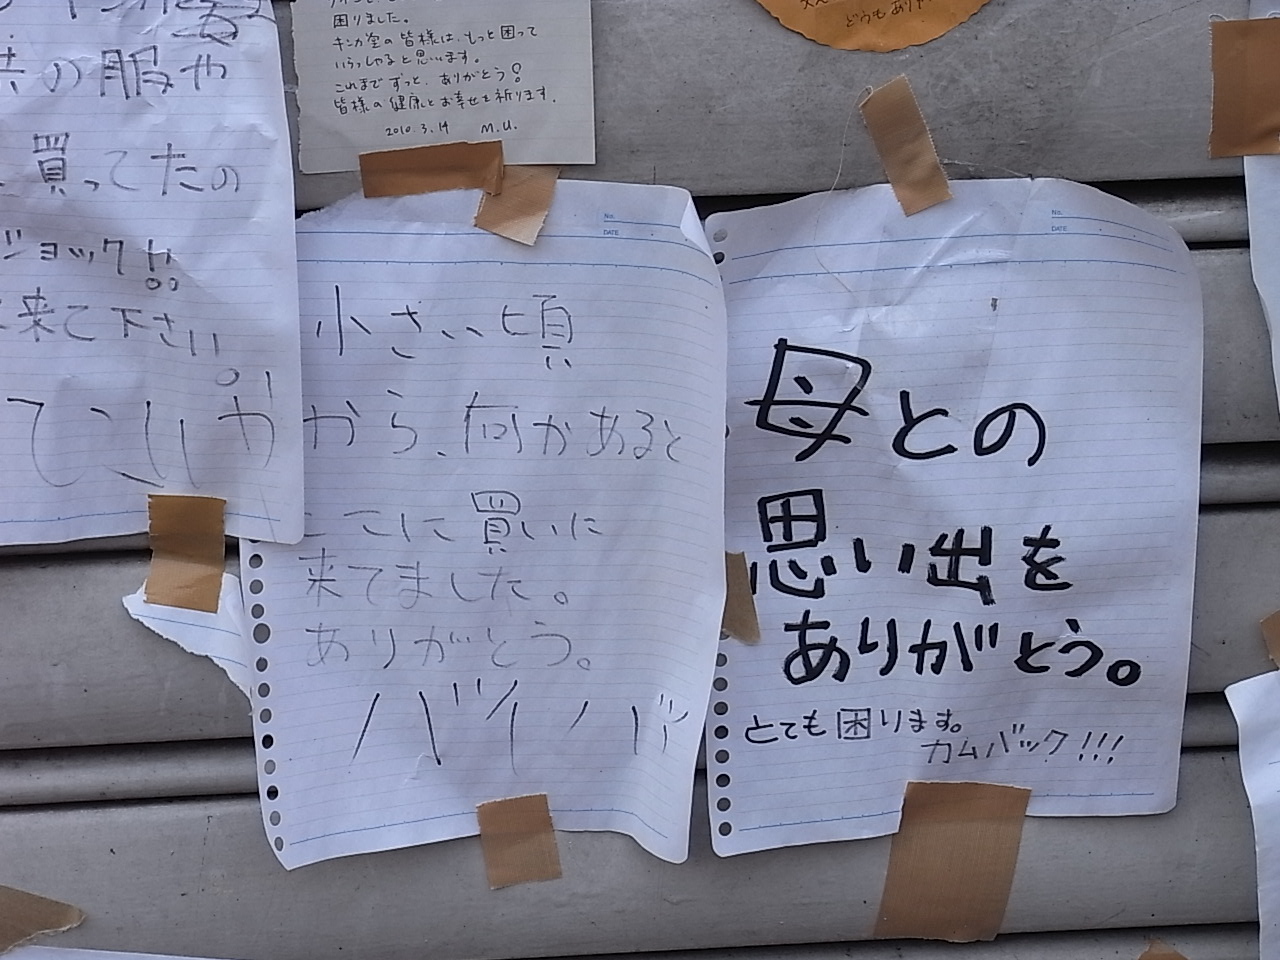 困りました。
キンカ堂の皆様は、もっと困って
いらっしゃると思います。
これまでずっと、ありがとう!
皆様の健康とお幸せを祈ります。
2010.3.14 M.U.
どうもありが
の服や
買ってたの
ショック!!
来て下さい。
No.
DATE
小さい頃
から、何かあると
ここに買いに
来てました。
ありがとう。
バイバイ
No.
DATE
母との
思い出を
ありがとう。
とても困ります。
カムバック!!!